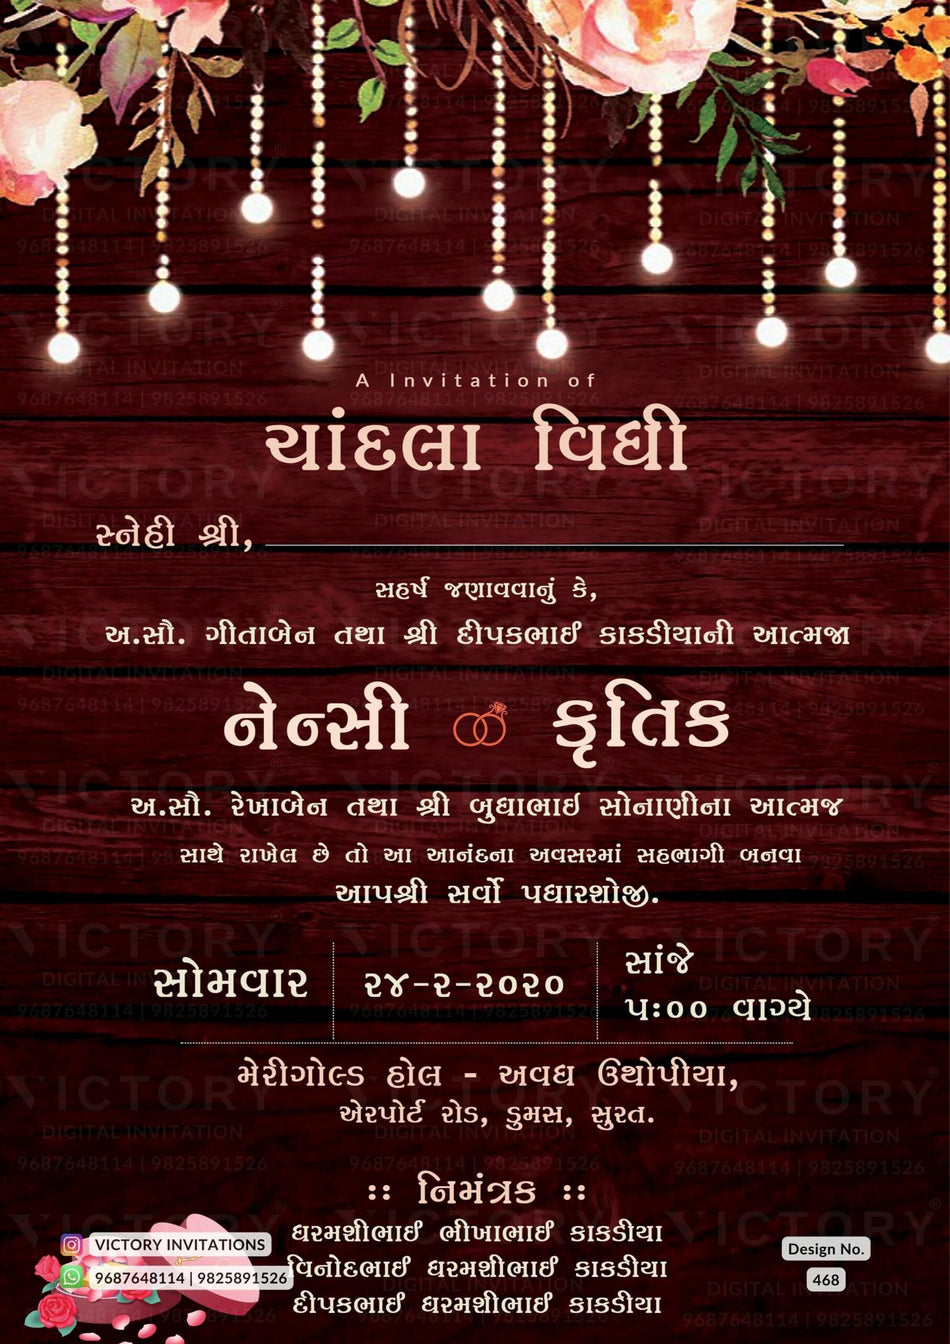 A Invitation of
ચાંદલા વિધી
સ્નેહી શ્રી,
સહર્ષ જણાવવાનું કે,
અ.સૌ. ગીતાબેન તથા શ્રી દીપકભાઈ કાકડીયાની આત્મજા
નેન્સી કૃતિક
અ.સૌ. રેખાબેન તથા શ્રી બુધાભાઇ સોનાણીના આત્મજ
સાથે રાખેલ છે તો આ આનંદના અવસરમાં સહભાગી બનવા
આપશ્રી સર્વો પધારશોજી.
સોમવાર
૨૪-૨-૨૦૨૦
સાંજે
૫:૦૦ વાગ્યે
મેરીગોલ્ડ હોલ - અવધ ઉથોપીયા,
એરપોર્ટ રોડ, ડુમસ, સુરત.
:: નિમંત્રક ::
ધરમશીભાઈ ભીખાભાઈ કાકડીયા
વિનોદભાઈ ધરમશીભાઈ કાકડીયા
દીપકભાઈ ધરમશીભાઈ કાકડીયા
VICTORY INVITATIONS
9687648114 | 9825891526
Design No.
468
VICTORY
DIGITAL INVITATION
9687648114 | 9825891526